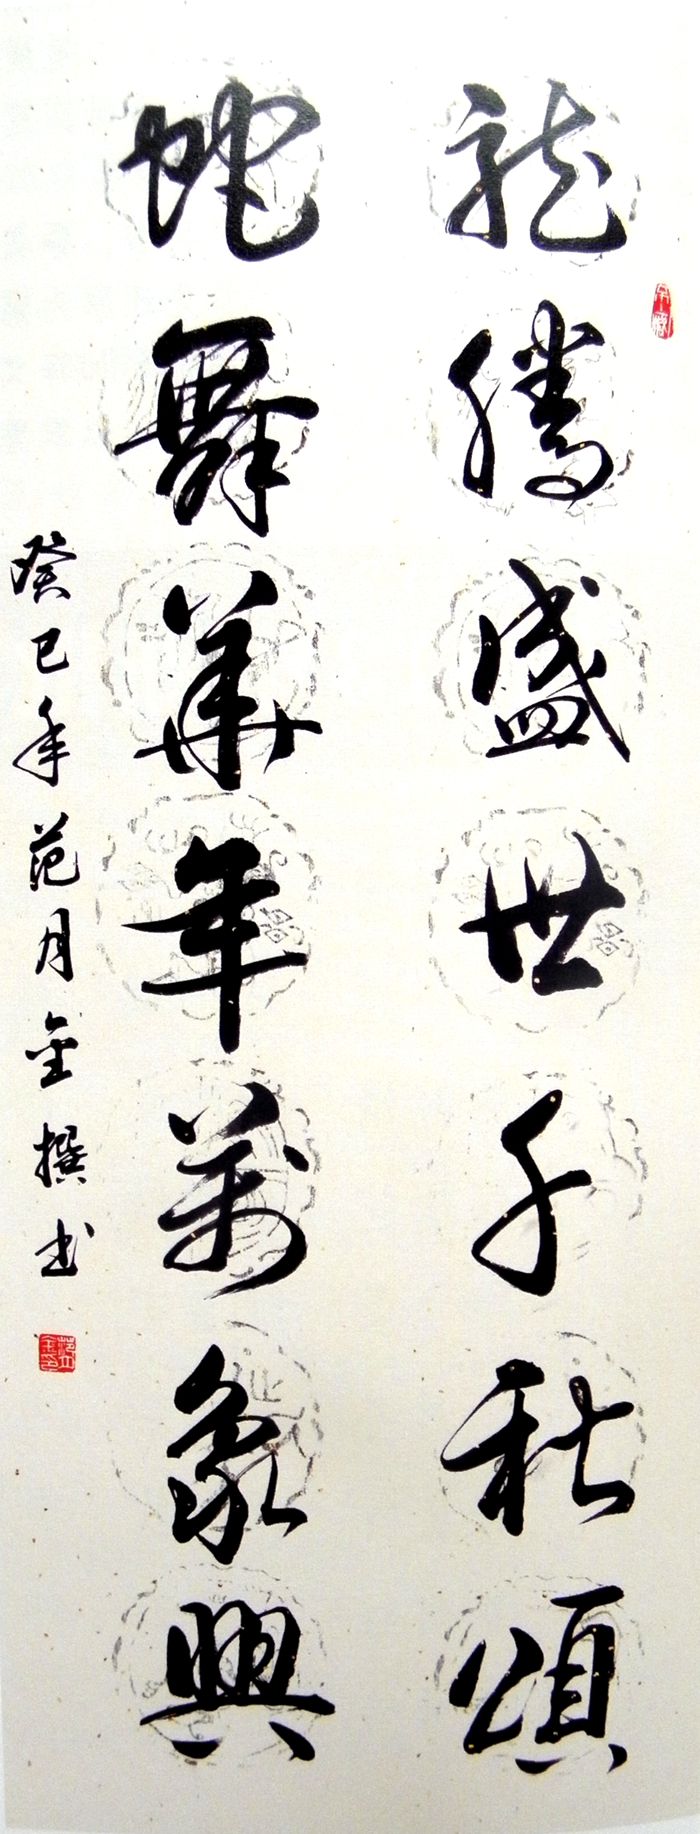 龍騰盛世千秋頌
蛇舞華年萬象興
癸巳年范月金撰书